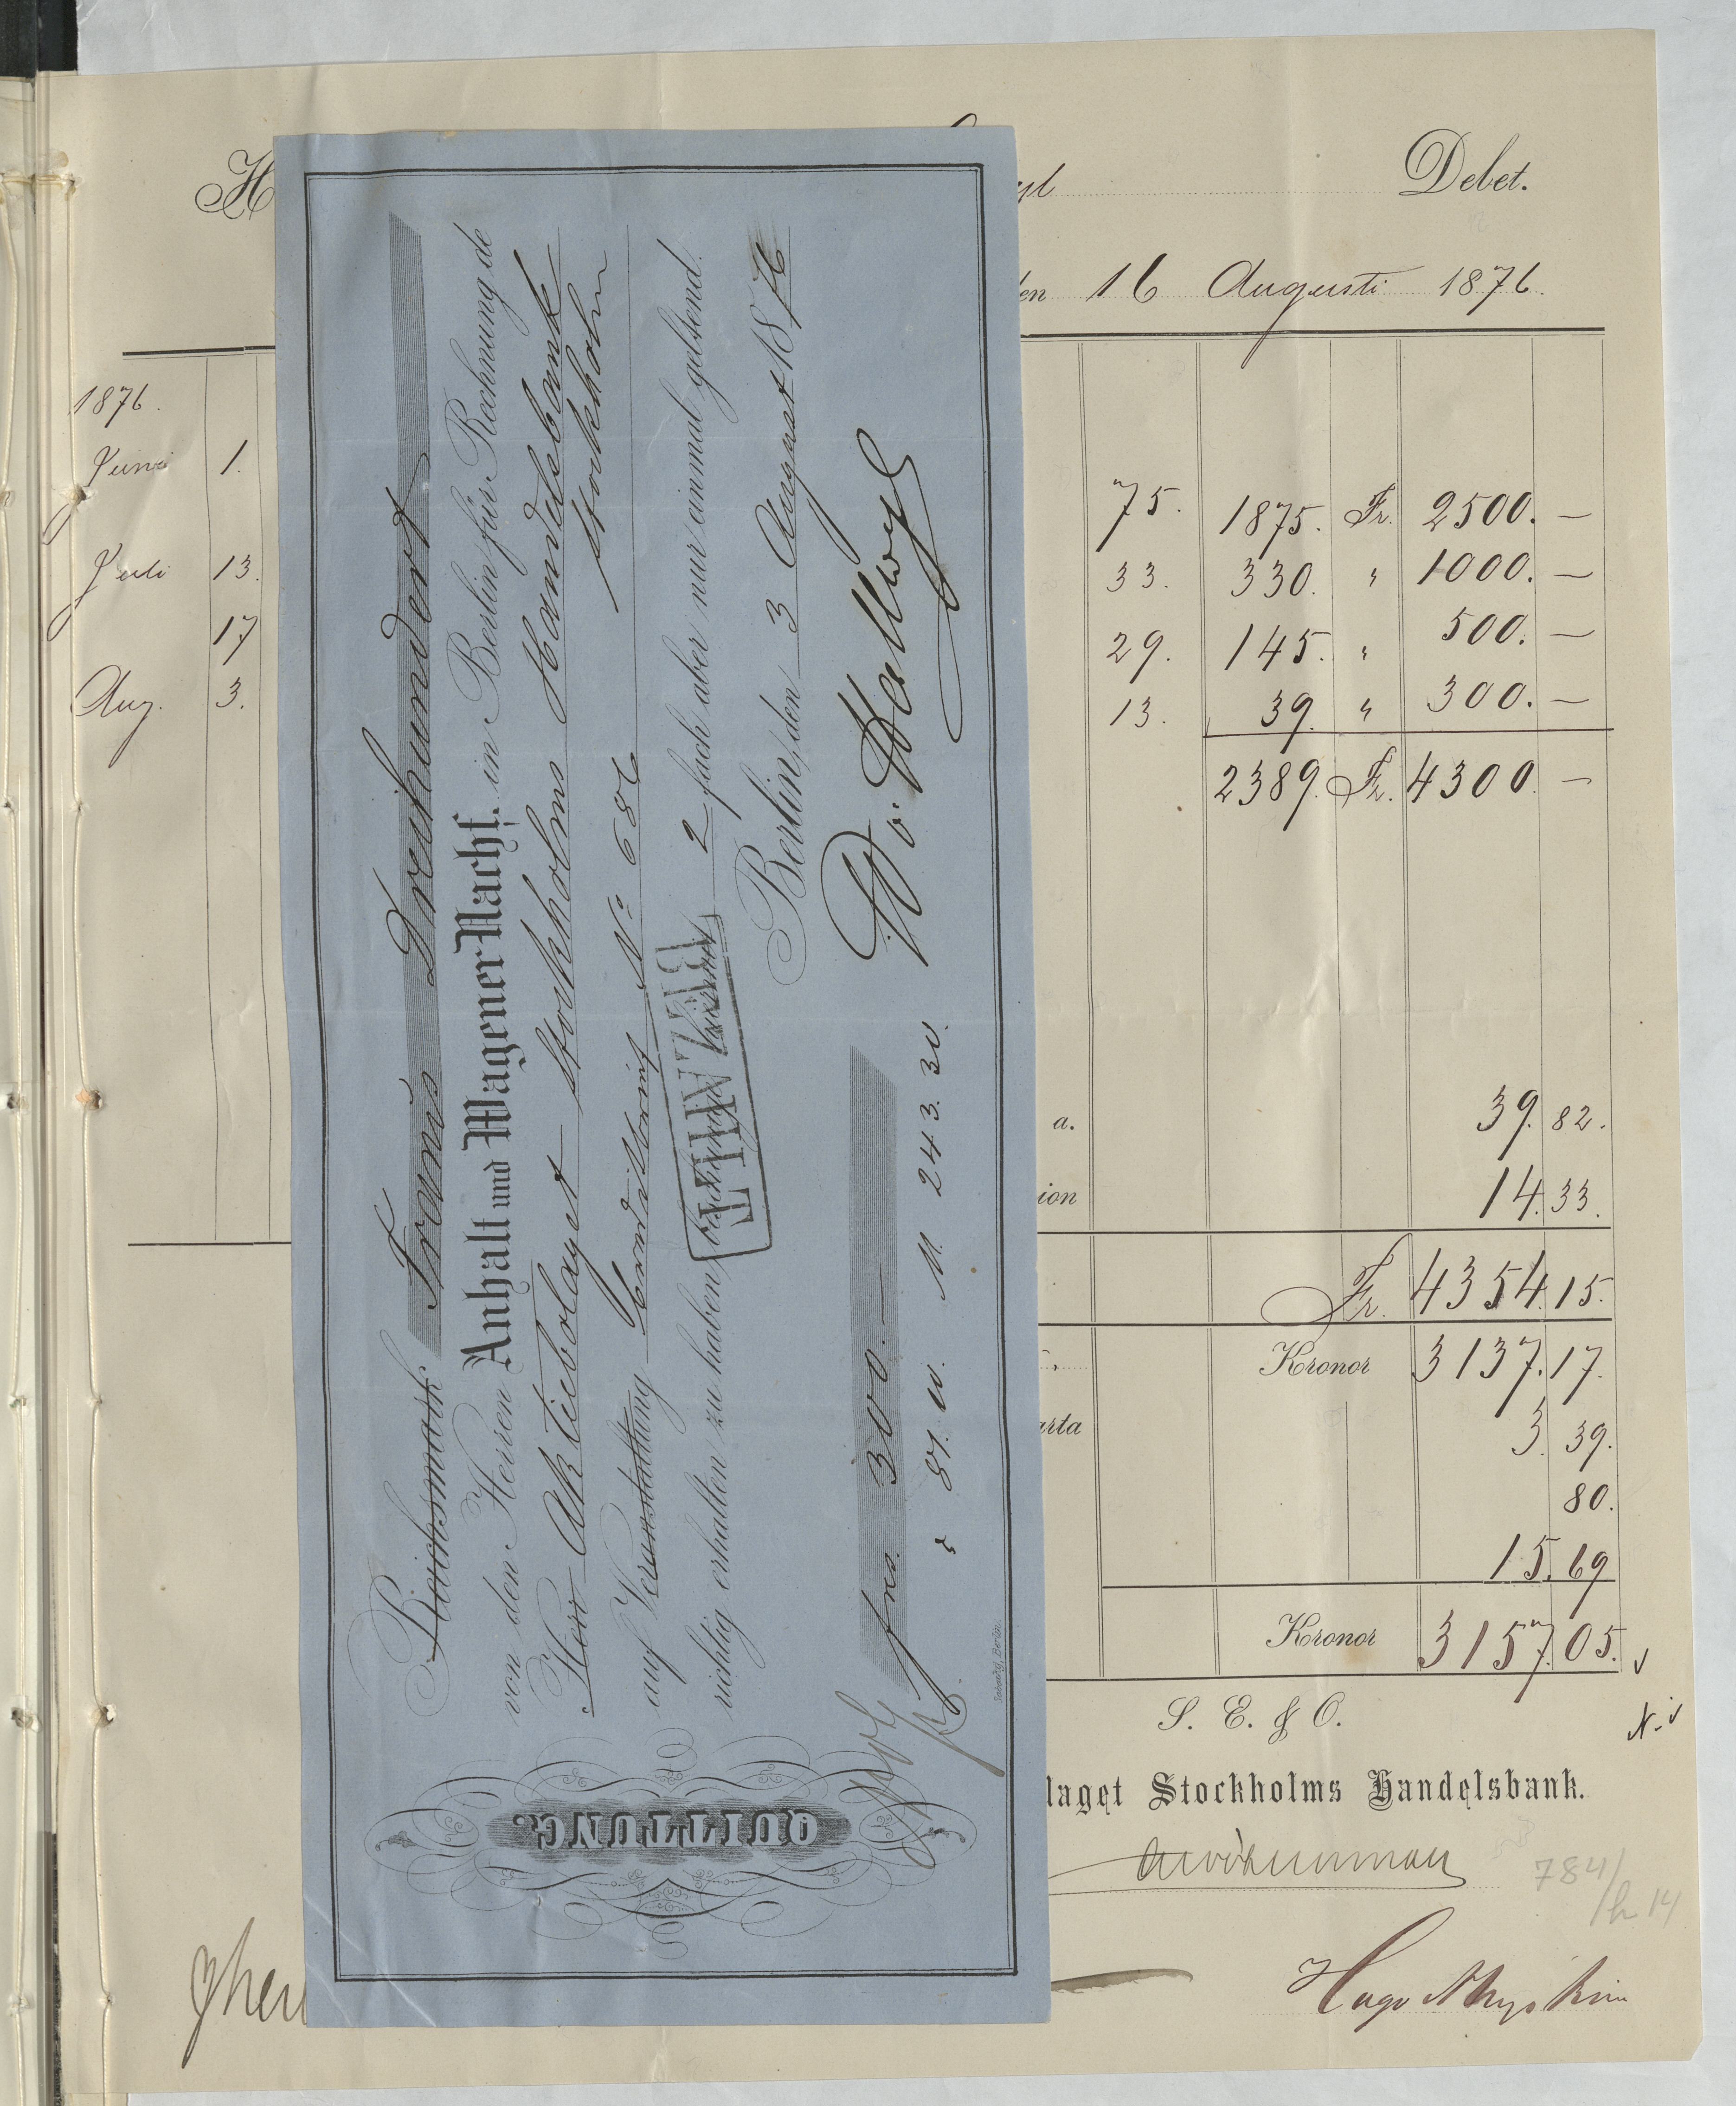 H
Debet.
den 16 Augusti 1876.
1876.
Juni 1. 75. 1875. Fr. 2500. —
Juli 13. 33. 330. " 1000. —
17 29. 145. " 500. —
Aug. 3. 13. 39. " 300. —
2389. Fr. 4300 —
a. 39. 82.
ion 14. 33.
Fr. 4354. 15.
Kronor 3137. 17.
arta 3. 39.
80.
15. 69
Kronor 3157. 05.
S. E. & O.
laget Stockholms Handelsbank.
784/
h 14
QUITTUNG.
Reichsmark Francs Dreihundert
von den Herren Anhalt und Wagener Nachf. in Berlin für Rechnung de
Herr Aktiebolaget Stockholms Handelsbank
Stockholm
auf Veranstaltung Creditbrief No 686
richtig erhalten zu haben, bescheinige hiermit 2 fach aber nur einmal geltend.
Berlin, den 3 August 1876
W. v. Hallwyl
frcs. 300.—
81.10. M. 243.30.